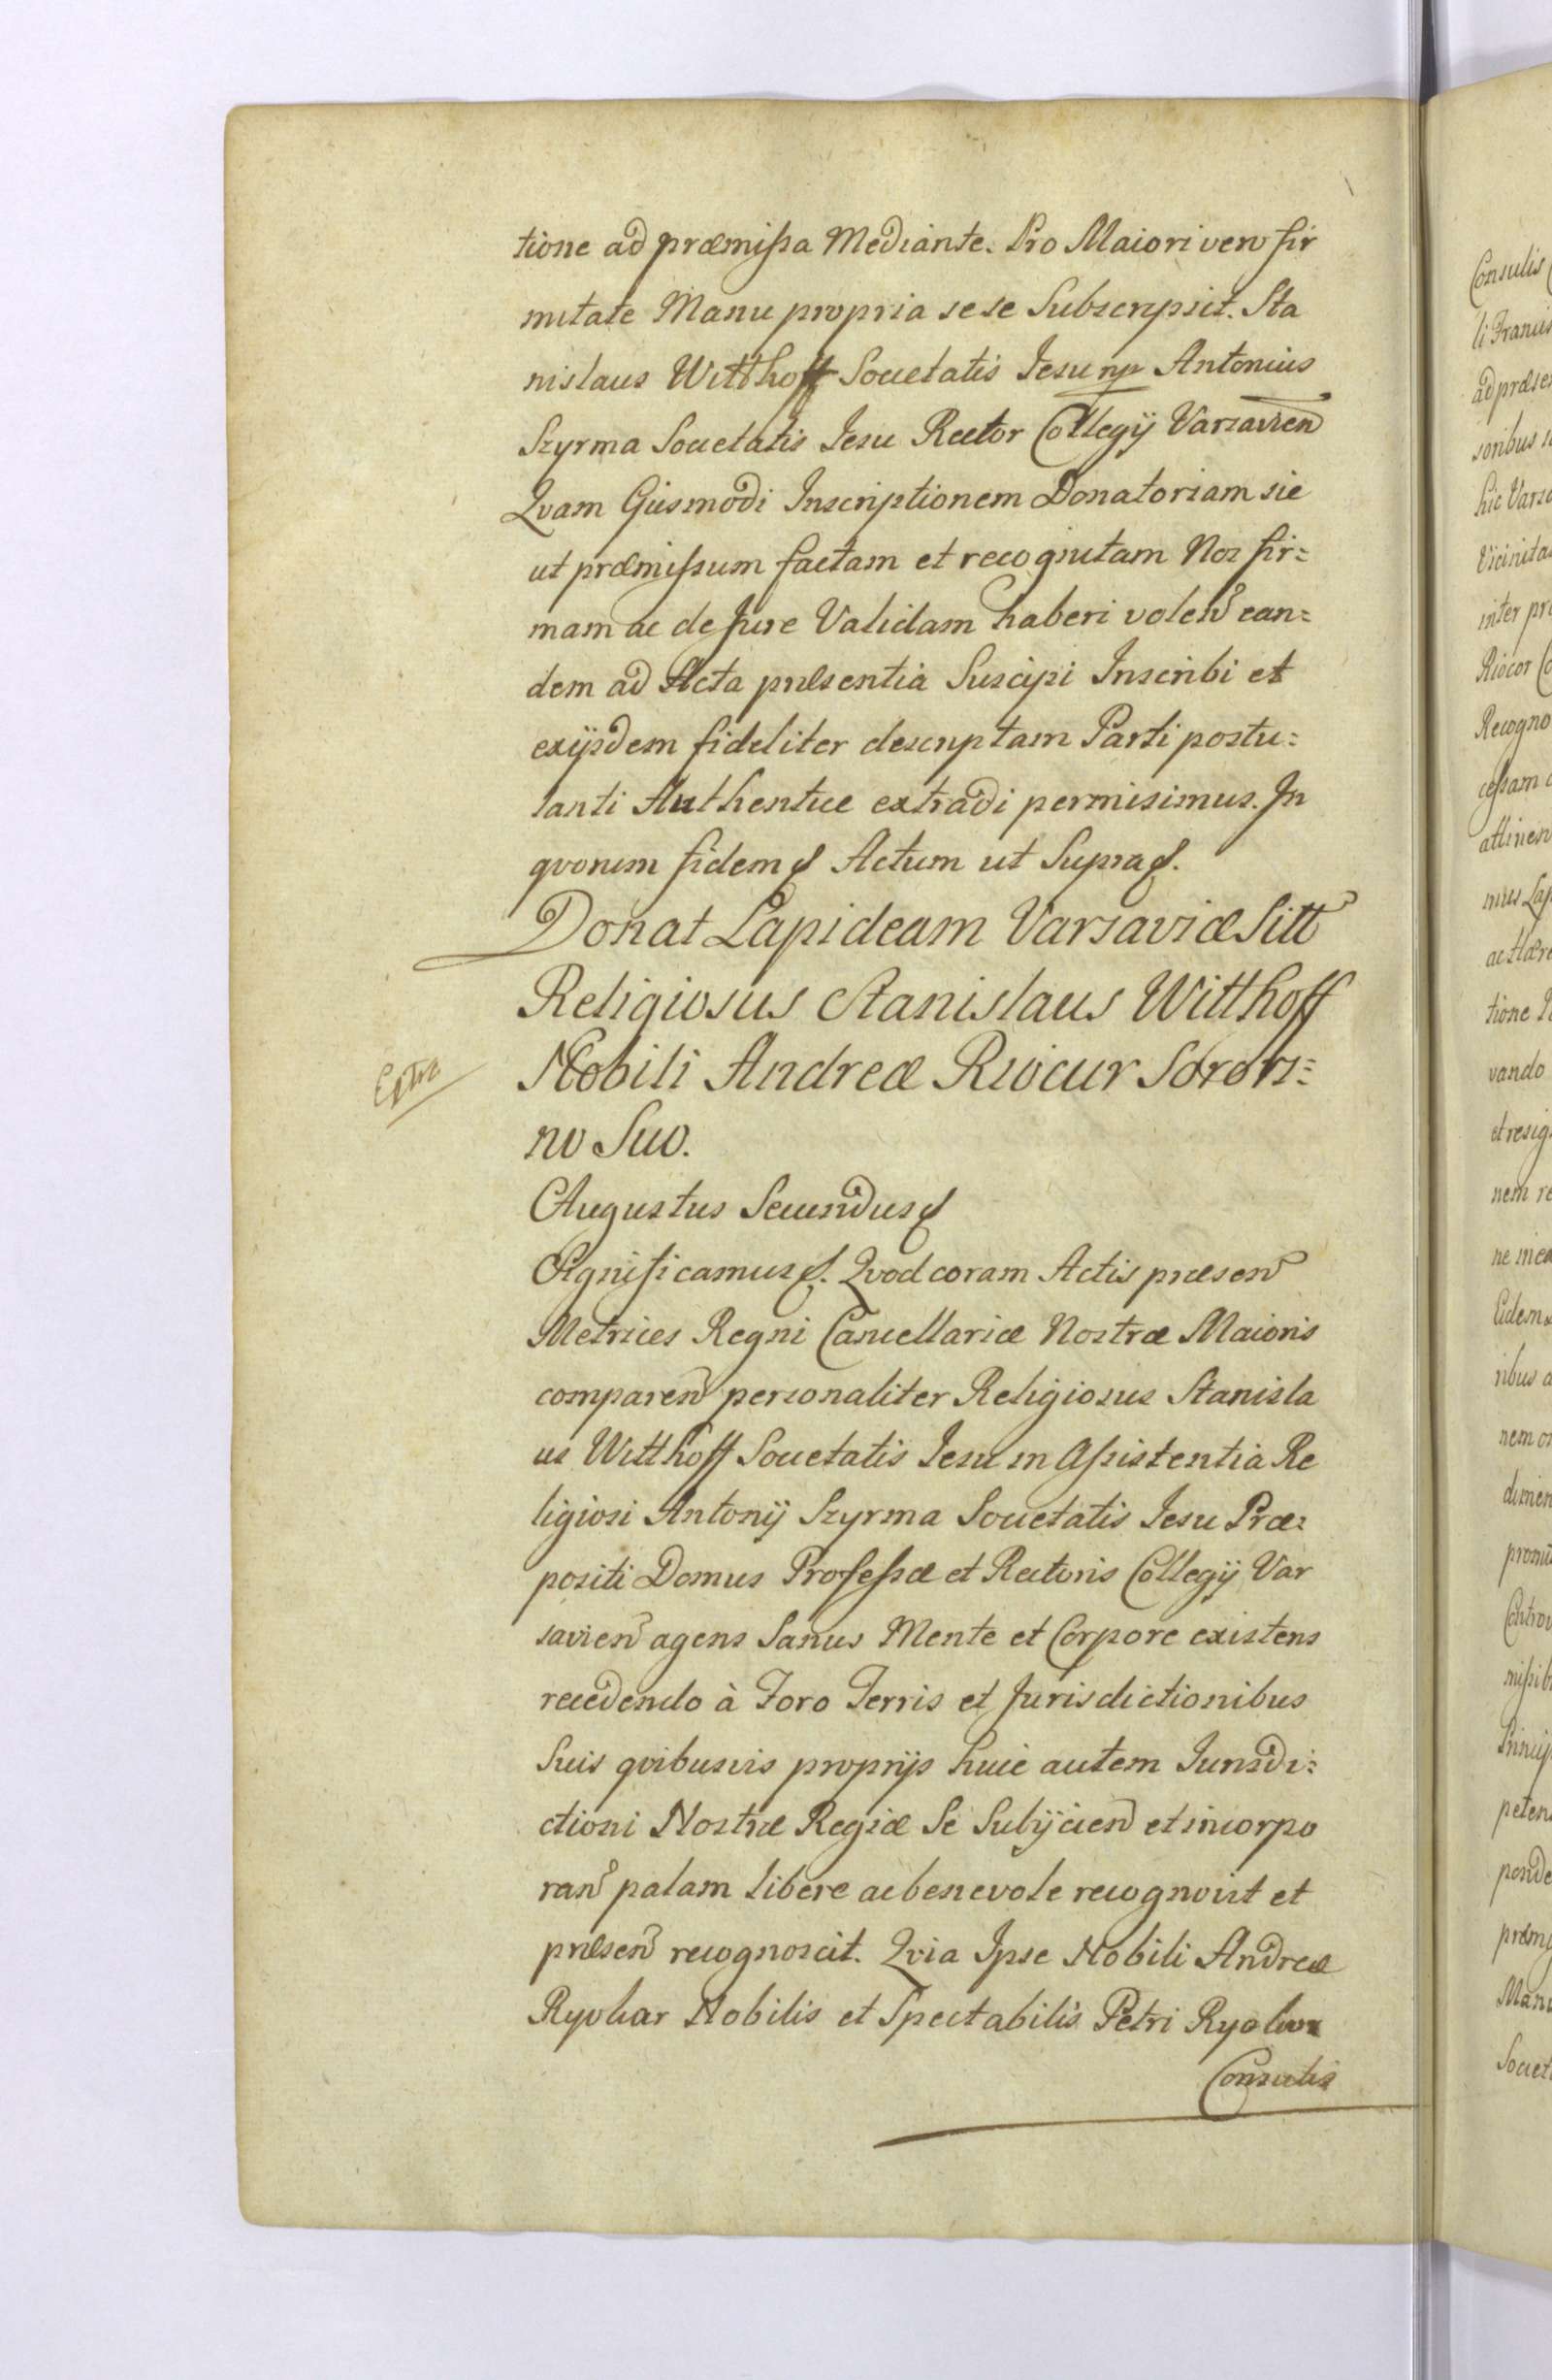 tione ad præmissa Mediante. Pro Maiori vero fir
mitate Manu propria sese Subscripsit. Sta
nislaus Witthoff Societatis Iesu mp Antonius
Szyrma Societatis Iesu Rector Collegij Varsavien
Qvam Ejusmodi Inscriptionem Donatoriam sic
ut præmissum factam et recognitam Nos fir=
mam ac de Jure Validam haberi volen ean=
dem ad Acta præsentia Suscipi Inscribi et
ex ijsdem fideliter descriptam Parti postu=
lanti Authentice extradi permisimus. In
qvorum fidem Actum ut Supra.
Donat Lapideam Varsaviæ Sitt
Religiosus Stanislaus Witthoff
Extra
Nobili Andreæ Riocur Sorori=
no Suo.
Augustus Secundus
Significamus. Qvod coram Actis præsen
Metrices Regni Cancellariæ Nostræ Maioris
comparen personaliter Religiosus Stanisla
us Witthoff Societatis Iesu in Assistentia Re
ligiosi Antonij Szyrma Societatis Iesu Præ=
positi Domus Professæ et Rectoris Collegij Var
savien agens Sanus Mente et Corpore existens
recedendo à Foro Terris et Jurisdictionibus
Suis qvibusvis proprijs huic autem Iurisdi=
ctioni Nostræ Regiæ Se Subijcien et incorpo
ran palam libere ac benevole recognovit et
præsen recognoscit. Qvia Ipse Nobili Andreæ
Ryokar Nobilis et Spectabilis Petri
Consulis
Consulis
li Francis
ad præse
soribus
hic Varsa
Vicinita
inter pr
Riocor Co
Recogno
cessam
attinen
mus Lap
ac Hære
tione
vando
et resig
nem re
ne in ea
Eidem
ribus a
nem or
dimen
promi
Contro
missib
Princip
peten
ponde
præmi
Manu
Societ